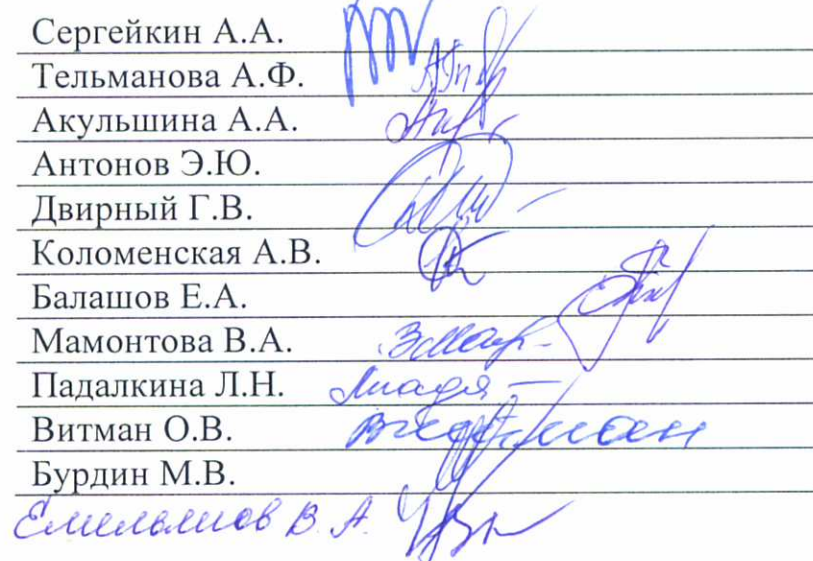 Сергейкин А.А.
Тельманова А.Ф.
Акульшина А.А.
Антонов Э.Ю.
Двирный Г.В.
Коломенская А.В.
Балашов Е.А.
Мамонтова В.А.
Падалкина Л.Н.
Витман О.В. Витман
Бурдин М.В.
Емельянов В.А.